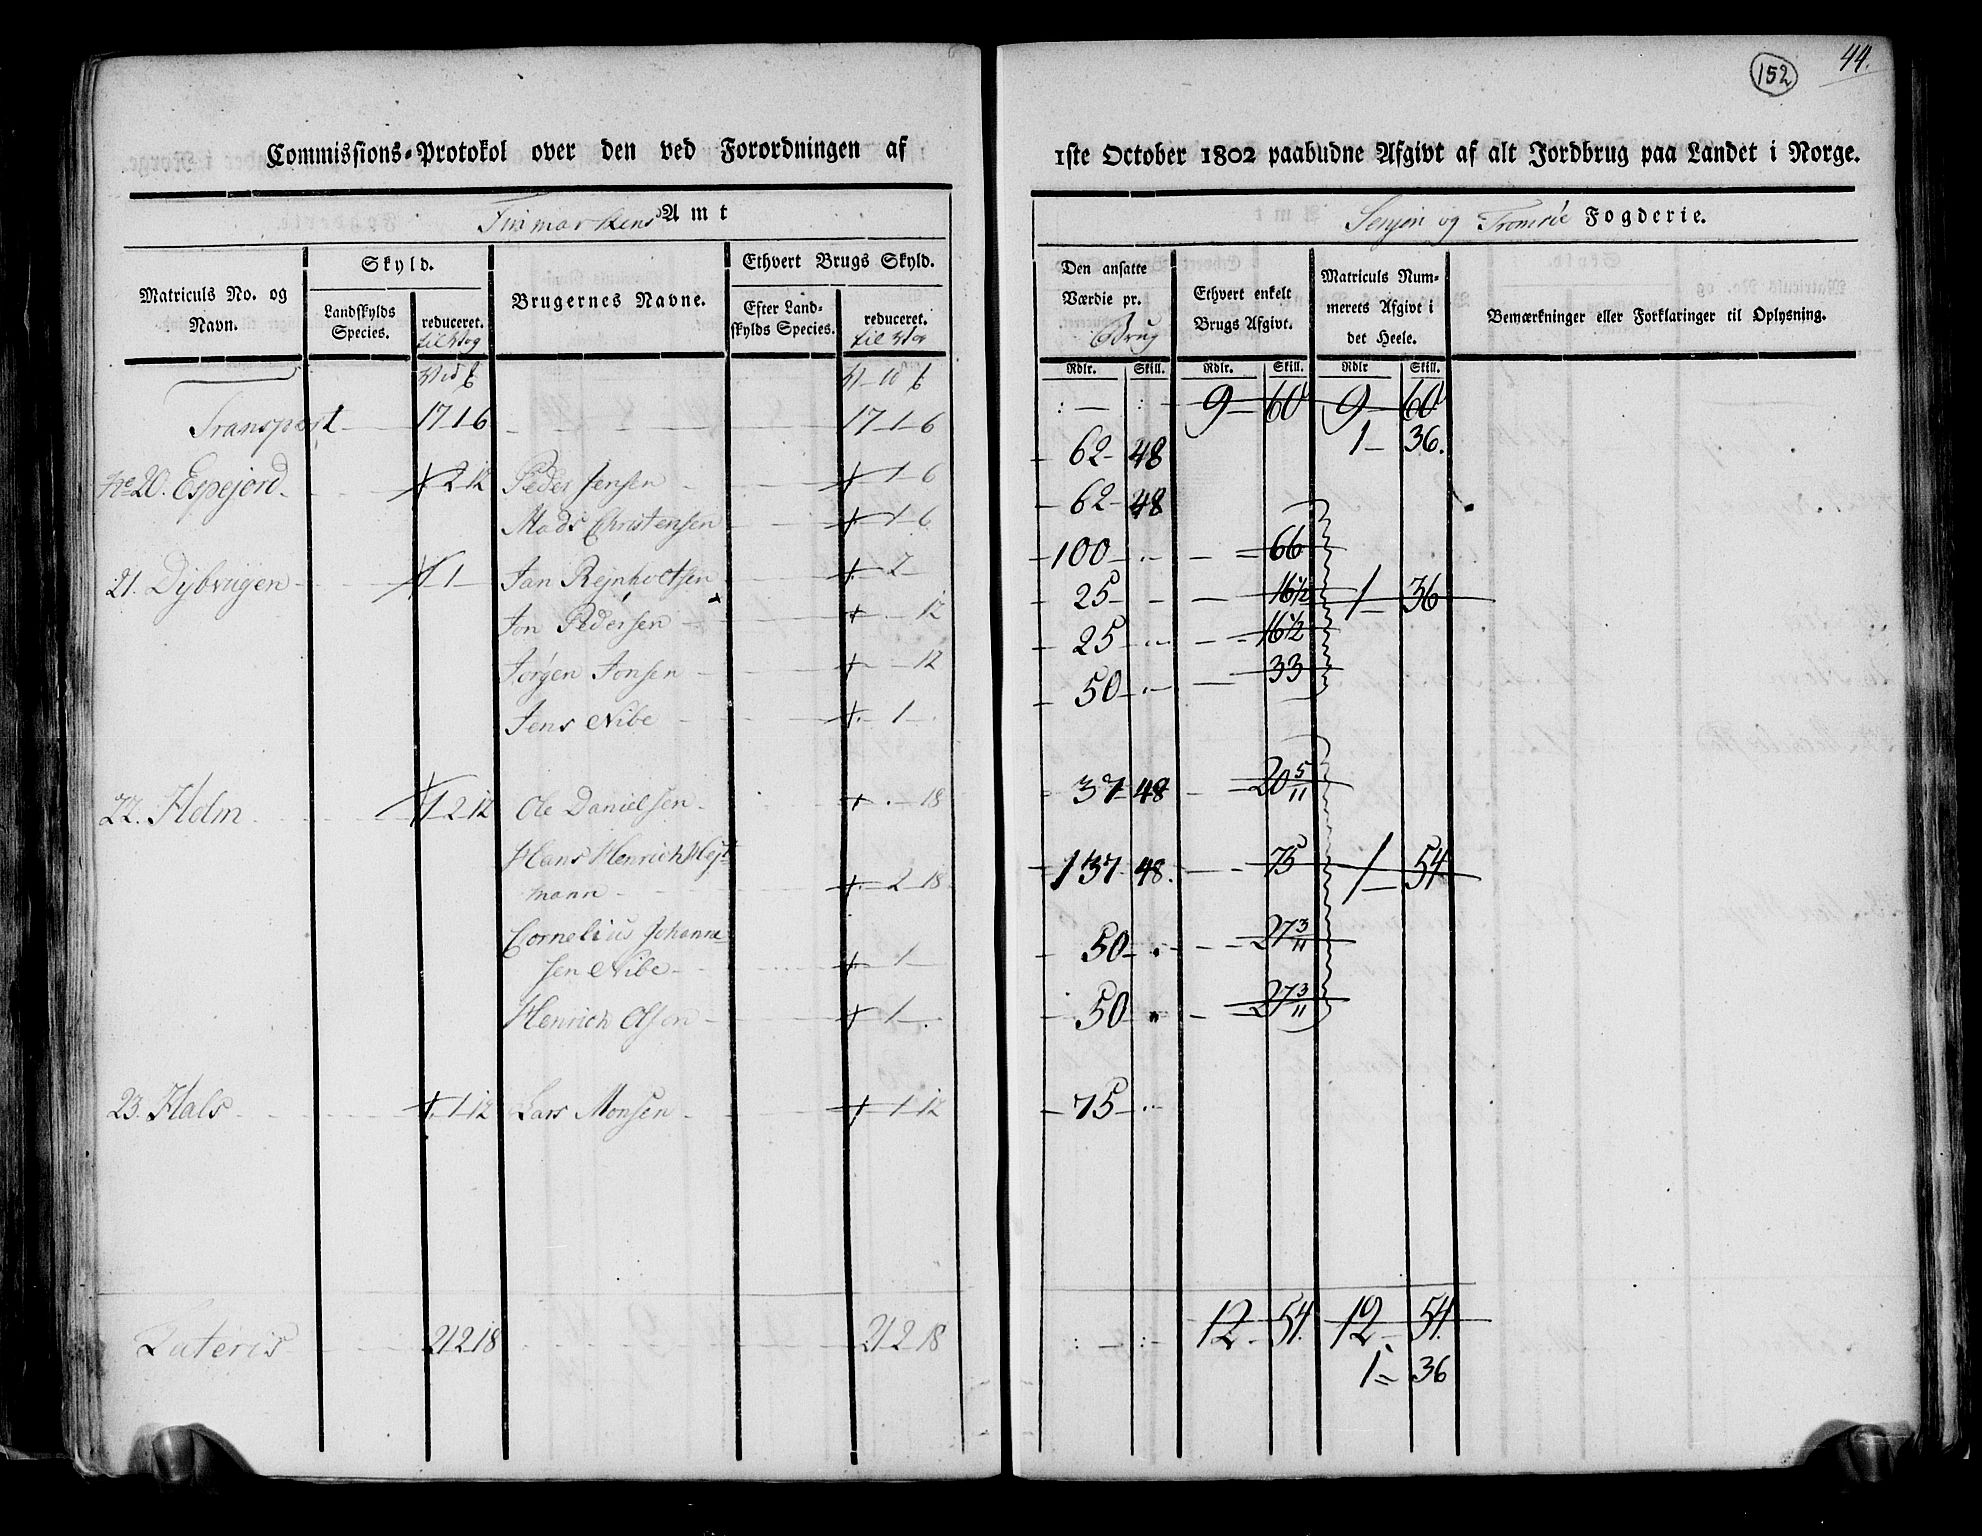 152
44.
Commissions-Protokol over den ved Forordningen af 1ste October 1802 paabudne Afgivt af alt Jordbrug paa Landet i Norge.
Finmarkens Amt
Senjen og Tromsöe Fogderie.
Matriculs No. og Navn.
Skyld.
Landskylds Species.
reduceret. til Vog
Brugernes Navne.
Ethvert Brugs Skyld.
Efter Landskylds Species.
reduceret. til Vog
Den ansatte Værdie pr. Brug
Ethvert enkelt Brugs Afgivt.
Matriculs Nummerets Afgivt i det Heele.
Bemærkninger eller Forklaringer til Oplysning.
Rdlr. Skill. Rdlr. Skill. Rdlr Skill.
Transport 17 1 6 17 1 6 9 60 9 60
No 20. Espejord 2 12 Peder Jensen 1 6 62 48 1 36.
Mads Christensen 1 6 62 48
21. Dybvigen 1 Jan Rejnholtsen 2 100 66
Jon Pedersen 12 25 16½ 1 36
Jørgen Jonsen 12 25 16½
Jens Nibe 1 50 33
22. Holm 1 2 12 Ole Danielsen 18 37 48 20 5/11
Hans Henrich Hejt-
mann 2 18 137 48 75 1 54
Cornelius Johanne-
sen Nibe 1 50 27 3/11
Henrich Olson 1 50 27 3/11
23. Hals 1 12 Lars Monsen 1 12 75
Lateris 21 2 18 21 2 18 12 54 12 54
1 36